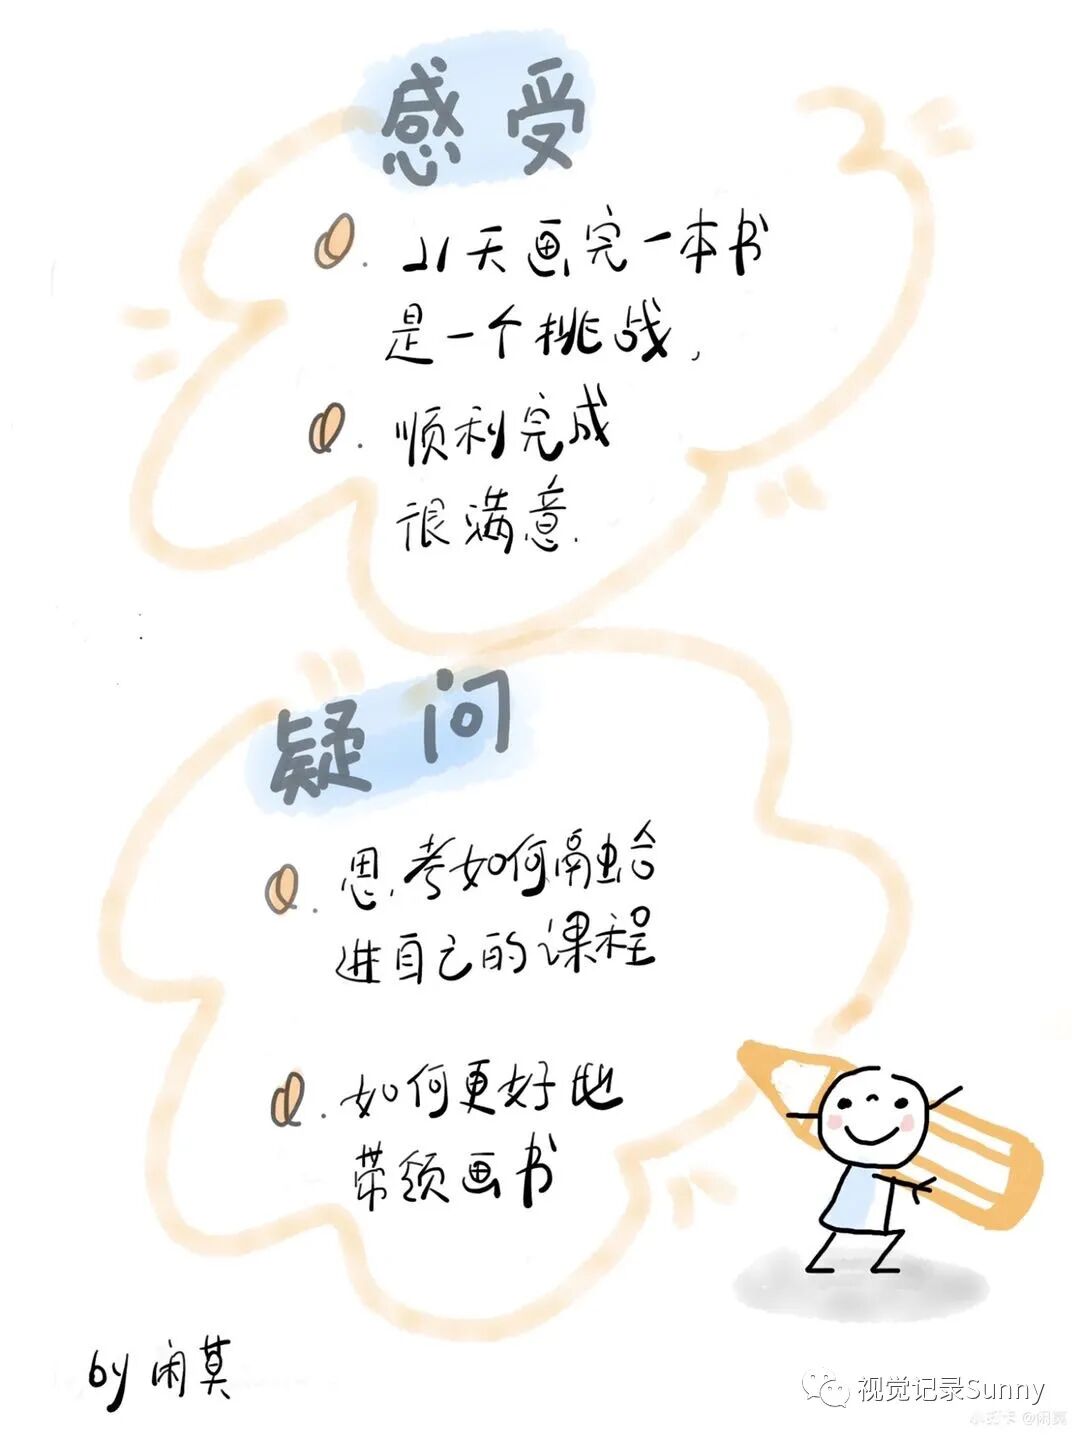 感受
21天画完一本书
是一个挑战,
顺利完成
很满意.
疑问
思考如何融合
进自己的课程
如何更好地
带领画书
by 闲莫
视觉记录Sunny